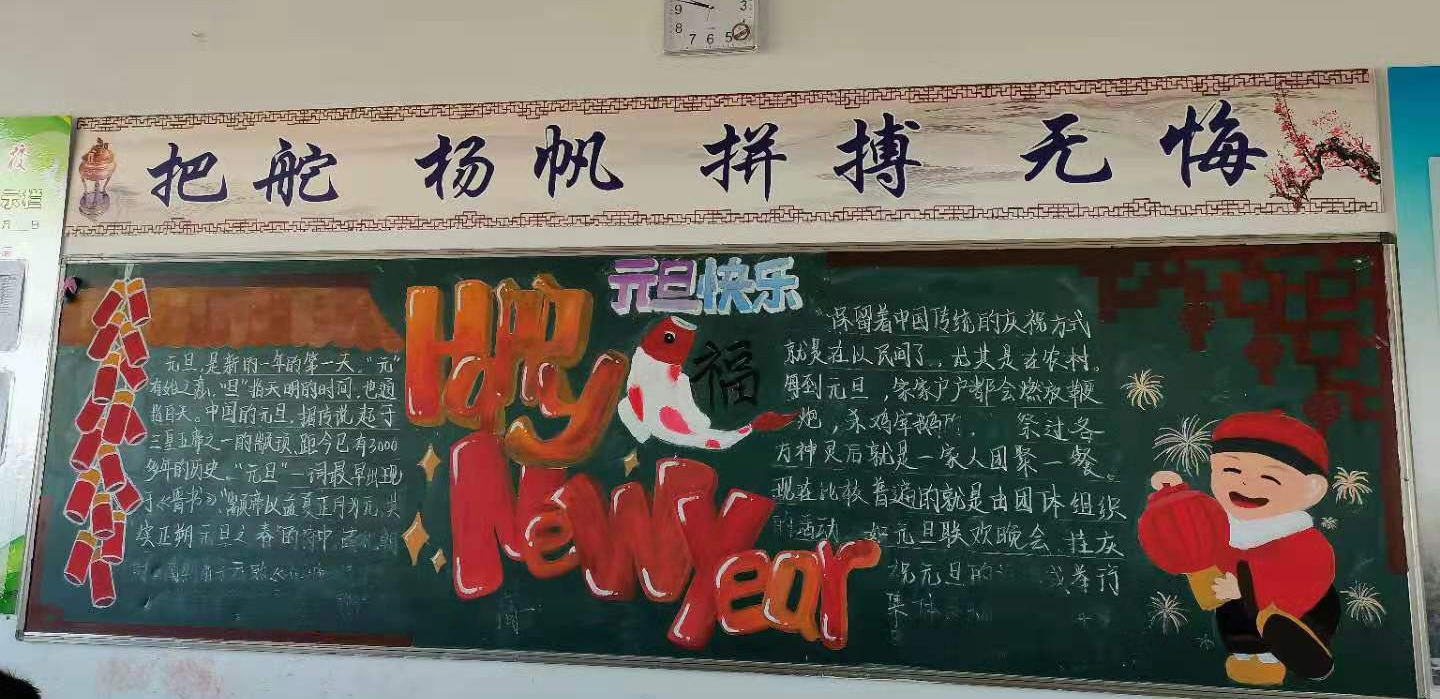 9 3
8 7 6 5
把舵 杨帆 拼搏 无悔
元旦快乐
Happy
福
New
Year
元旦,是新的一年的第一天。"元"
有始之意,"旦"指天明的时间,也通
指白天。中国的元旦,据传说起于
三皇五帝之一的颛顼,距今已有3000
多年的历史。"元旦"一词最早出现
于《晋书》:"颛帝以孟夏正月为元,其
实正朔元旦之春"的
保留着中国传统的庆祝方式
就是在以民间了,尤其是在农村。
每到元旦,家家户户都会燃放鞭
炮,杀鸡宰鹅 祭过各
方神灵后就是一家人团聚一餐。
现在比较普遍的就是由团体组织
的活动 如元旦联欢晚会、挂庆
祝元旦的 或举行
集体